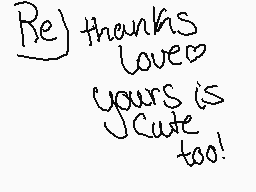 Re) thanks
love♡
yours is
cute
too!